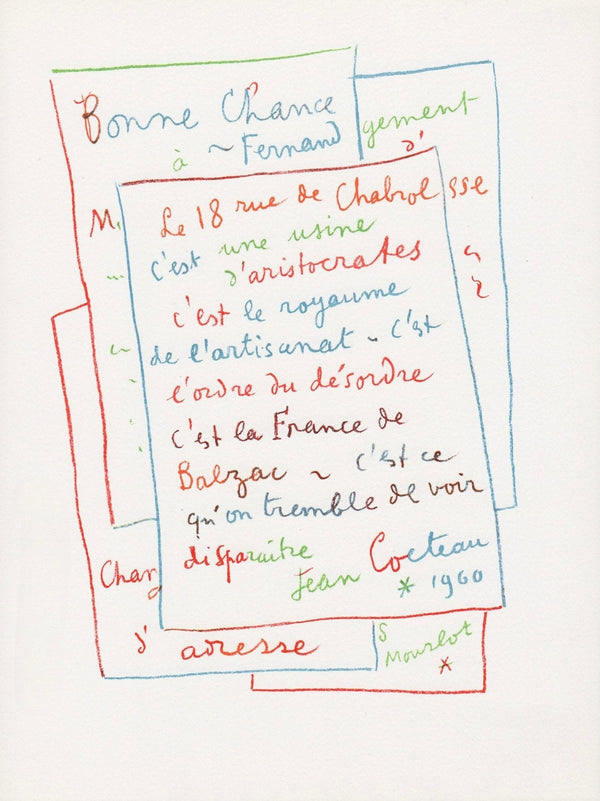 Bonne Chance
à ~ Fernand
gement
d'
M.
sse
Le 18 rue de Chabrol
c'est une usine
d'aristocrates
c'est le royaume
de l'artisanat ~ c'est
l'ordre du désordre
c'est la France de
Balzac ~ c'est ce
qu'on tremble de voir
disparaitre
Jean Cocteau
* 1960
Chan
d' adresse
S
Mourlot
*